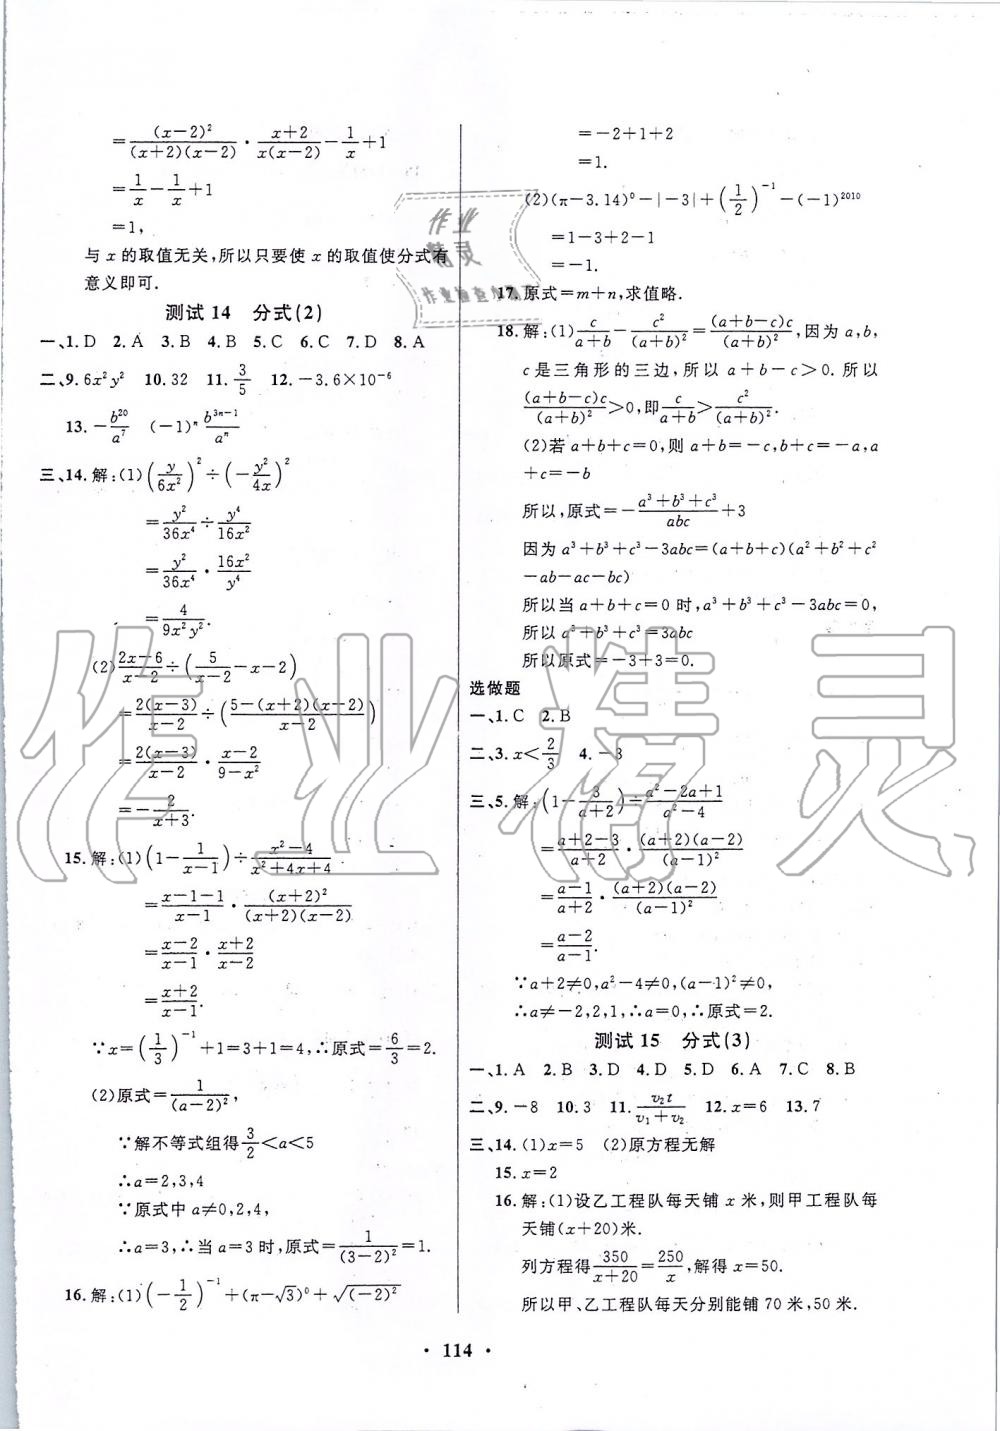 =(x−2)²/((x+2)(x−2))·(x+2)/(x(x−2))−1/x+1
=1/x−1/x+1
=1,
与x的取值无关,所以只要使x的取值使分式有
意义即可.
测试14 分式(2)
一、1.D 2.A 3.B 4.B 5.C 6.C 7.D 8.A
二、9.6x²y² 10.32 11.3/5 12.−3.6×10⁻⁶
13.−b²⁰/a⁷ (−1)ⁿb³ⁿ⁻¹/aⁿ
三、14.解:(1)(y/6x²)²÷(−y²/4x)²
=y²/36x⁴÷y⁴/16x²
=y²/36x⁴·16x²/y⁴
=4/9x²y².
(2)(2x−6)/(x−2)÷(5/(x−2)−x−2)
=2(x−3)/(x−2)÷((5−(x+2)(x−2))/(x−2))
=2(x−3)/(x−2)·(x−2)/(9−x²)
=−2/(x+3).
15.解:(1)(1−1/(x−1))÷(x²−4)/(x²+4x+4)
=(x−1−1)/(x−1)·(x+2)²/((x+2)(x−2))
=(x−2)/(x−1)·(x+2)/(x−2)
=(x+2)/(x−1).
∵x=(1/3)⁻¹+1=3+1=4,∴原式=6/3=2.
(2)原式=1/(a−2)²,
∵解不等式组得3/2<a<5
∴a=2,3,4
∵原式中a≠0,2,4,
∴a=3,∴当a=3时,原式=1/(3−2)²=1.
16.解:(1)(−1/2)⁻¹+(π−√3)⁰+√(−2)²
=−2+1+2
=1.
(2)(π−3.14)⁰−|−3|+(1/2)⁻¹−(−1)²⁰¹⁰
=1−3+2−1
=−1.
17.原式=m+n,求值略.
18.解:(1)c/(a+b)−c²/(a+b)²=(a+b−c)c/(a+b)²,因为a,b,
c是三角形的三边,所以a+b−c>0.所以
(a+b−c)c/(a+b)²>0,即c/(a+b)>c²/(a+b)².
(2)若a+b+c=0,则a+b=−c,b+c=−a,a
+c=−b
所以,原式=−(a³+b³+c³)/abc+3
因为a³+b³+c³−3abc=(a+b+c)(a²+b²+c²
−ab−ac−bc)
所以当a+b+c=0时,a³+b³+c³−3abc=0,
所以a³+b³+c³=3abc
所以原式=−3+3=0.
选做题
一、1.C 2.B
二、3.x<2/3 4.−3
三、5.解:(1−3/(a+2))÷(a²−2a+1)/(a²−4)
=(a+2−3)/(a+2)·(a+2)(a−2)/(a−1)²
=(a−1)/(a+2)·(a+2)(a−2)/(a−1)²
=(a−2)/(a−1).
∵a+2≠0,a²−4≠0,(a−1)²≠0,
∴a≠−2,2,1,∴a=0,∴原式=2.
测试15 分式(3)
一、1.A 2.B 3.D 4.D 5.D 6.A 7.C 8.B
二、9.−8 10.3 11.v₂t/(v₁+v₂) 12.x=6 13.7
三、14.(1)x=5 (2)原方程无解
15.x=2
16.解:(1)设乙工程队每天铺x米,则甲工程队每
天铺(x+20)米.
列方程得350/(x+20)=250/x,解得x=50.
所以甲、乙工程队每天分别能铺70米,50米.
· 114 ·
作业精灵
作业
精灵